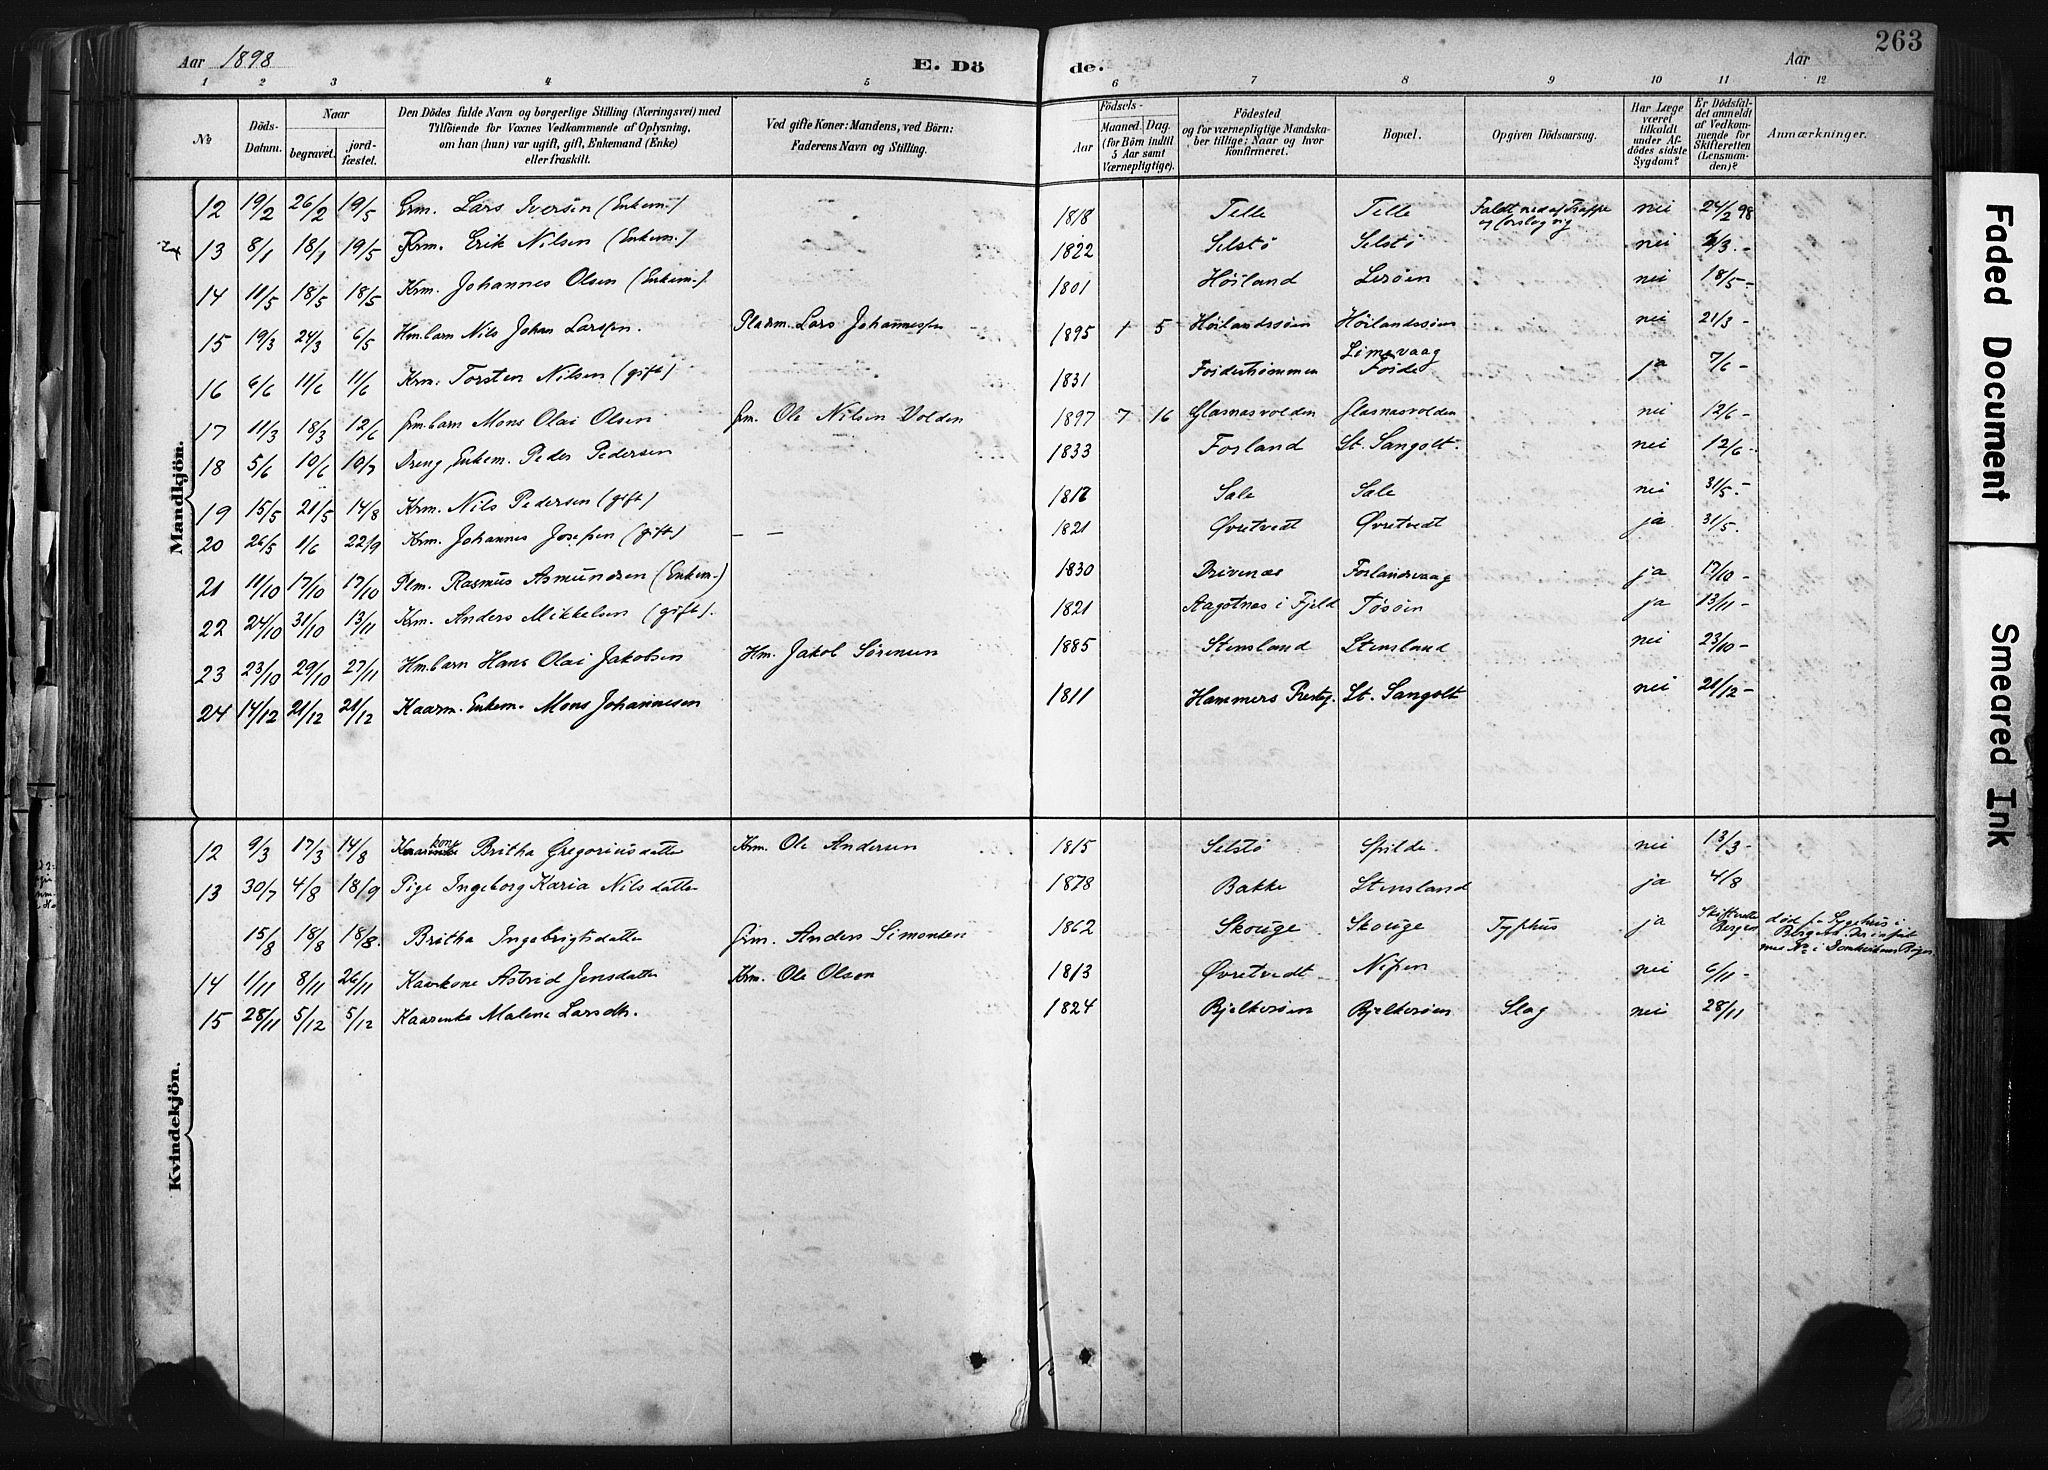 263
Aar 1898 E. Dö de. Aar
1 2 3 4 5 6 7 8 9 10 11 12
No Döds-Datum. Naar begravet. jordfæstet. Den Dödes fulde Navn og borgerlige Stilling (Næringsvei) med Tilföiende for Voxnes Vedkommende af Oplysning, om han (hun) var ugift, gift, Enkemand (Enke) eller fraskilt. Ved gifte Koner: Mandens, ved Börn: Faderens Navn og Stilling. Födsels- Aar Maaned. Dag. (for Börn indtil 5 Aar samt Værnepligtige). Födested og for værnepligtige Mandskaber tillige: Naar og hvor konfirmeret. Bopæl. Opgiven Dödsaarsag. Har Læge været tilkaldt under Afdödes sidste Sygdom? Er Dödsfaldet anmeldt af Vedkommende for Skifteretten (Lensmanden)? Anmærkninger.
Mandkjön.
12 19/2 26/2 19/5 Grm. Lars Iversen (Enkem.) 1818 Telle Telle Faldt ned af Trappe og forslog sig nei 24/2 98
13 8/1 18/1 19/5 Krm. Erik Nilsen (Enkem.) 1822 Selstø Selstø nei /3 -
14 11/5 18/5 18/5 Krm. Johannes Olsen (Enkem.) 1801 Høiland Lerøen nei 18/5 -
15 19/3 24/3 6/5 Hm.barn Nils Johan Larssen. Pladsm. Lars Johannessen 1895 1 5 Høilandssøen Høilandssøen nei 21/3 -
16 6/6 11/6 11/6 Krm. Torsten Nilsen (gift) 1831 Foidetrømmen Limavaag Foide ja 7/6 -
17 11/3 18/3 12/6 Grm.barn Mons Olai Olsen Grm. Ole Nilsen Volden 1897 7 16 Glasnasvolden Glasnasvolden nei 12/6 -
18 5/6 10/6 10/7 Dreng Enkem. Peder Pedersen 1833 Forland St. Sangolt. nei 12/6 -
19 15/5 21/5 14/8 Krm. Nils Pedersen (gift) 1817 Sale Sale nei 31/5 -
20 26/5 1/6 22/9 Krm. Johannes Josefsen (gift) — — 1821 Øvretvedt Øvretvedt ja 31/5.
21 11/10 17/10 17/10 Plm. Rasmus Asmundsen (Enkem.) 1830 Drivenæs Forlandsvaag ja 17/10 -
22 24/10 31/10 13/11 Krm. Anders Mikkelsen (gift). 1821 Aagotnas i Fjeld Tøsøen ja 13/11 -
23 23/10 29/10 27/11 Hm.barn Hans Olai Jakobsen Hm. Jakob Sørensen 1885 Stensland Stensland nei 23/10 -
24 14/12 21/12 21/12 Kaarm. Enkem. Mons Johannesen 1811 Hammers Prestg. St. Sangolt nei 21/12 -
Kvindekjön.
12 9/3 17/3 14/8 Kaarkone Britha Gregoriusdatter Krm. Ole Andersen 1815 Selstø Spilde nei 13/3 -
13 30/7 4/8 18/9 Pige Ingeborg Karia Nilsdatter 1878 Bakke Stensland ja 4/8
15/8 18/8 18/8. Britha Ingebrigtsdatter Grm. Anders Simonsen 1862 Skouge Skouge Typhus ja Skifteretten Bergen død på Sygehus i Bergen. Der indført med No i Domkirkens Bøger.
14 1/11 8/11 26/11 Kaarkone Astrid Jensdatter Krm. Ole Olsen 1813 Øvretvedt Nipen nei 6/11 -
15 28/11 5/12 5/12 Kaarenke Malene Larsdtr. 1824 Bjelkerøen Bjelkerøen Slag nei 28/11
Faded Document
Smeared Ink